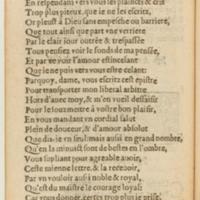 En respendant vers vous les plainctz & cris
Trop plus piteux, que ie ne les escritz,
Or pleust à Dieu sans empesche ou barriere,
Que tout ainsi que part vne verriere
Par le clair iour outrée & trespassée
Tous peussiez voir le fonds de ma pensée,
Et par ce voir l'amour estincelant
Que ie ne puis vers vous estre celant:
Parquoy, dame, vous escrire est cest espitre
Pour transporter mon liberal arbitre
Hors d'auec moy, & m'en veuil dessaisir
Pour le soumettre à vostre bon plaisir,
En vous mandant vn cordial salut
Plein de douceur, & d'amour absolut
Que dis-ie vn seul mais aussi en grand nombre,
Qu'en la minuict sont de bestes en l'ombre,
Vous supliant pour agreable auoir,
Ceste mienne lettre, & la receuoir,
Par vn vouloir aussi noble & royal,
Qu'est du maistre le courage loyal:
Car vous donner, certes trop plus ie prise